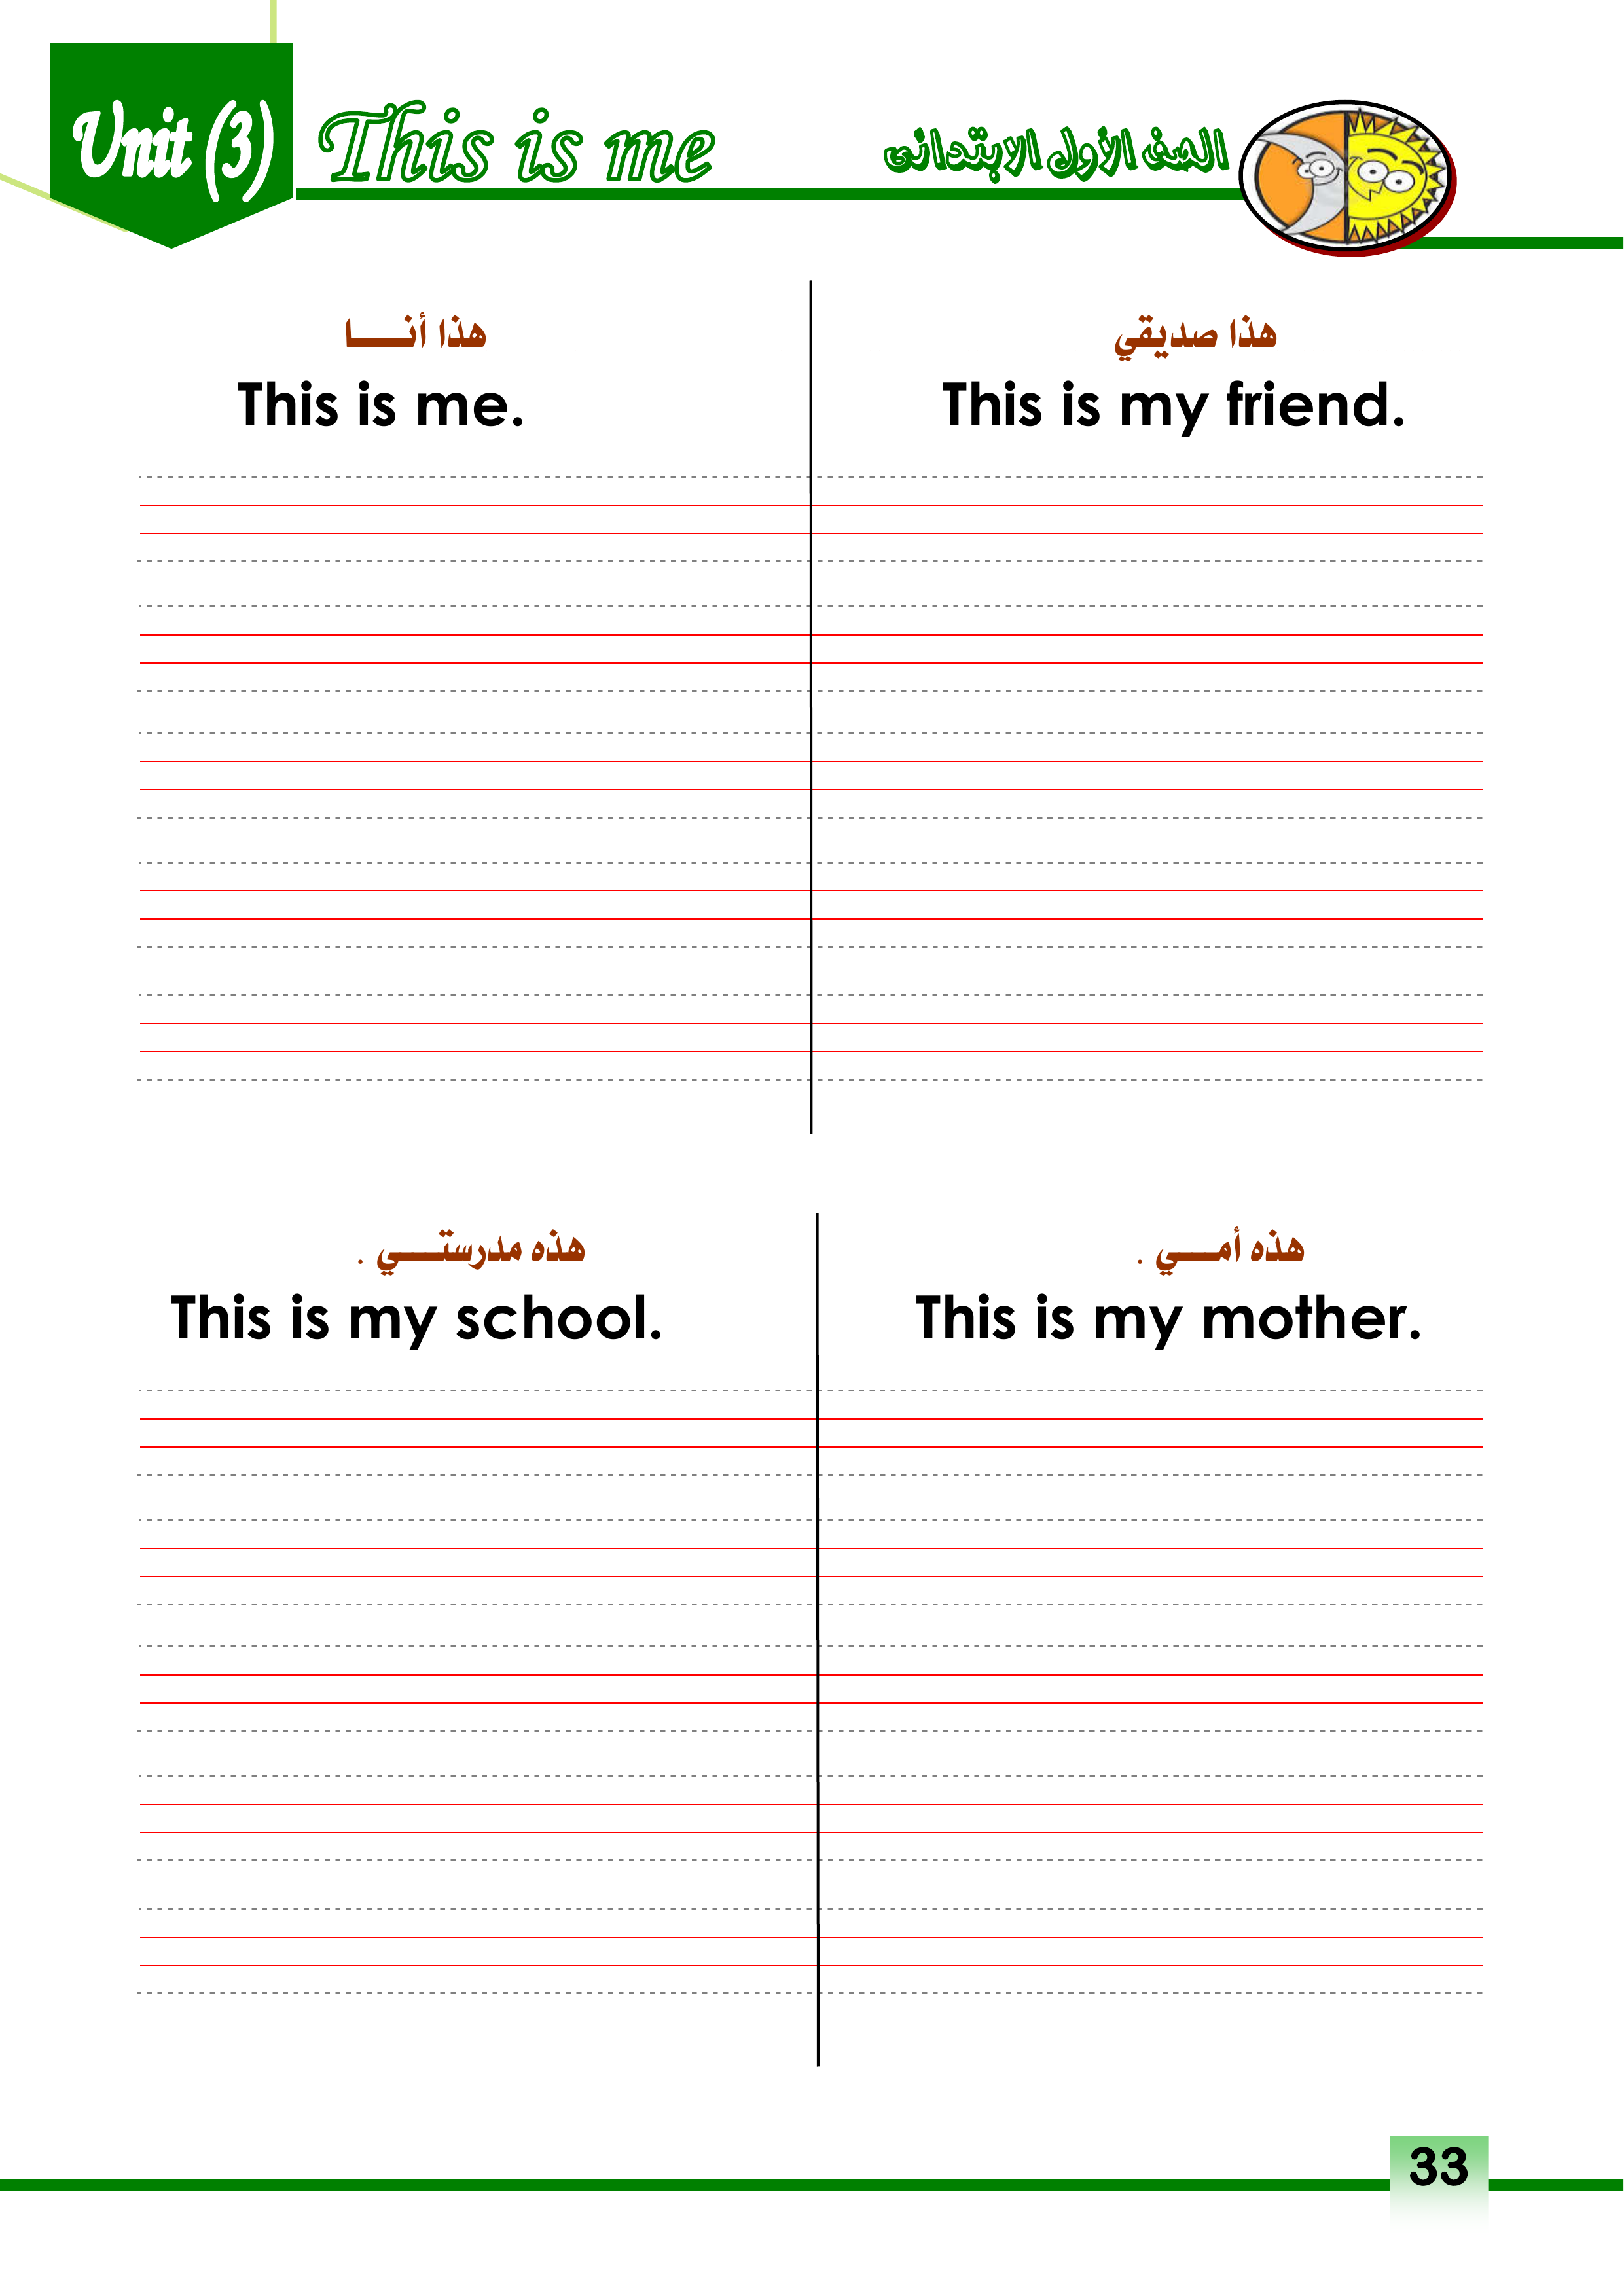 Unit (3)
This is me
الصف الأول الابتدائى
هذا أنـــــا
This is me.
هذا صديقي
This is my friend.
هذه مدرستـــــي .
This is my school.
هذه أمــــي .
This is my mother.
33